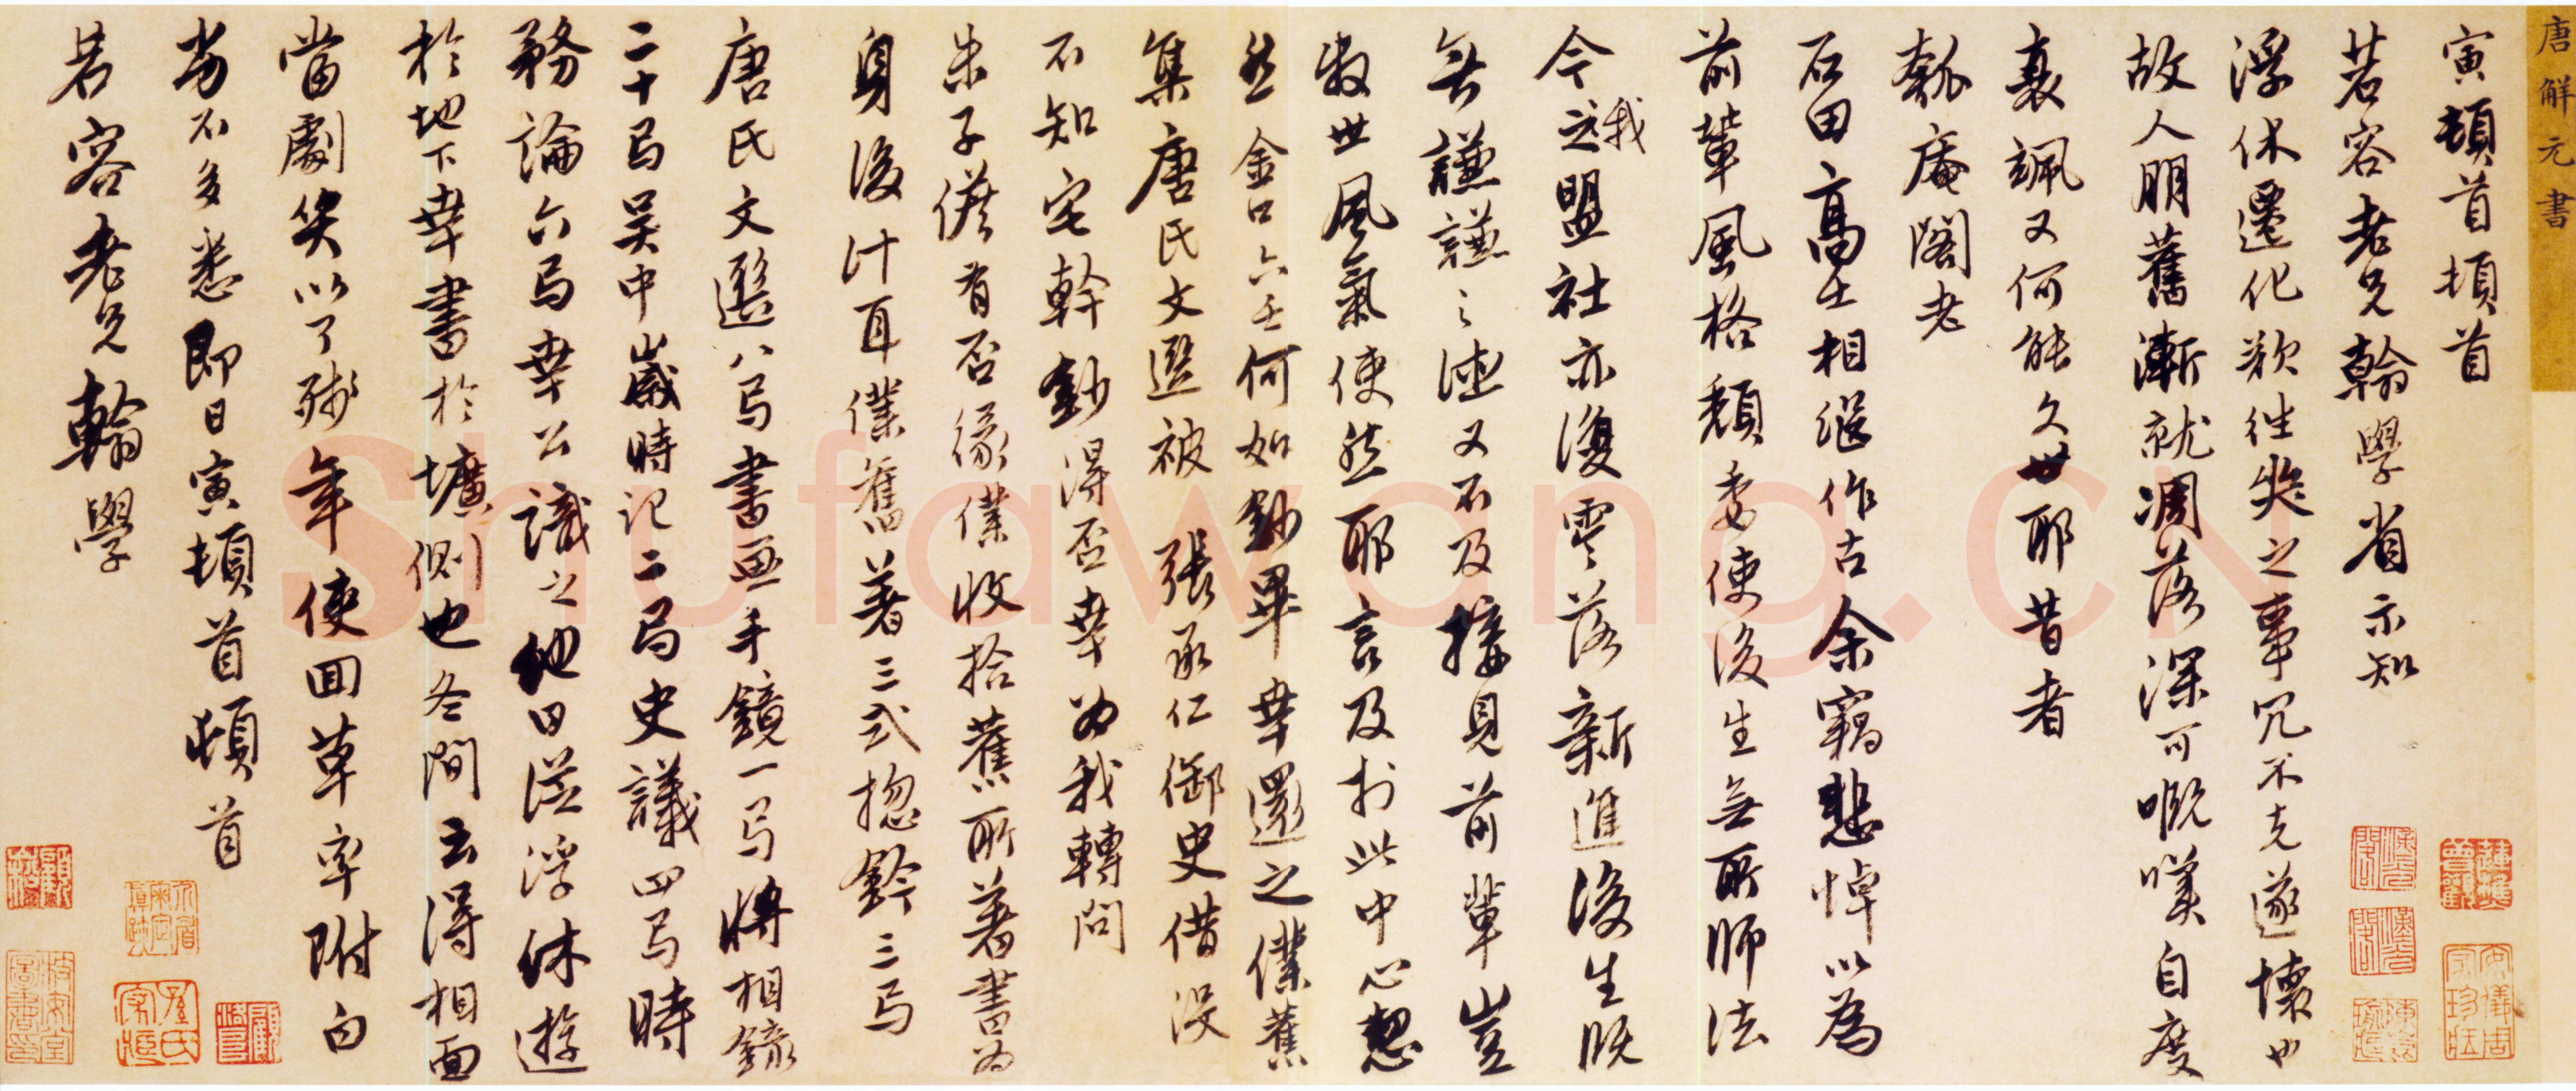 唐解元書
寅頓首頓首
若容老兄翰學省示知
浮休遷化欲往奠之事冗不克遂懷也
故人朋舊漸就凋落深可慨嘆自度
衰颯又何能久世耶昔者
匏庵閣老
石田高士相繼作古余竊悲悼以為
前輩風格頹委使後生無所師法
今之我盟社亦復零落新進後生既
無謙謙之德又不及接見前輩豈
世風氣使然耶言及於此中心愁
然金口六壬何如鈔畢幸還之僕舊
集唐氏文選被 張承仁御史借沒
不知宅幹鈔得否幸為我轉問
朱子儋有否緣僕收拾舊所著書為
身後計耳僕舊著三式捴鈐三局
唐氏文選八局書畫手鏡一局將相錄
二十局吳中歲時記二局史議四局時
務論六局幸公識之他日從浮休遊
於地下幸書於壙側也冬間云得相面
當劇笑以了殘年使回草率附白
劣不多悉即日寅頓首頓首
若容老兄翰學
Shufawang.CN